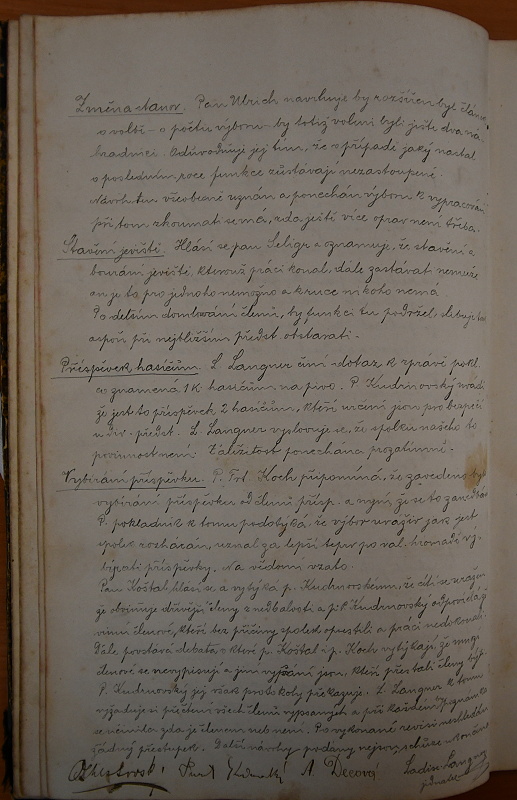 Změna stanov. Pan Ulrich navrhuje by rozšířen byl článek
o volbě – o počtu výboru – by totiž voleni byli ještě dva ná-
hradníci. Odůvodňuje jej tím, že v případě jaký nastal
v posledním roce funkce zůstávají nezastoupené.
Návrh ten všeobecně uznán a ponechán výboru k vypracování
při tom zkoumati se má, zda ještě více oprav není třeba.
Stavění jeviště. Hlásí se pan Seligr a oznamuje, že stavění a
bourání jeviště, kterouž práci konal, dále zastávat nemůže
an je to pro jednoho nemožno a k ruce nikoho nemá.
Po delším domlouvání členů, by funkci tu podržel slibuje tu
aspoň při nejbližším předst. obstarati.
Příspěvek hasičům. L. Langner činí dotaz k zprávě pokl.
co znamená 1 K hasičům na pivo. P. Kudrnovský uvádí
že jest to příspěvek 2 hasičům, kteří určeni jsou pro bezpečí
u div. předst. L. Langner vyslovuje se, že spolku našeho to
povinností není. Záležitost ponechána prozatímně.
Vybírání příspěvku. P. Frt. Koch připomíná, že zavedeno bylo
vybírání příspěvku od členů přisp. a nyní že se to zanedbává
P. pokladník k tomu podotýká, že výbor uváživ jak jest
spolek rozhárán, uznal za lepší teprv po val. hromadě vy-
bírati příspěvky. Na vědomí vzato.
Pan Košťál hlásí se a vytýká p. Kudrnovskému, že cítí se uražen
že obviňuje dřívější členy z nedbalosti a p. Kudrnovský odpovídá
vinni členové, kteří bez příčiny spolek opustili a práci nedokonali
Dále povstává debata o které p. Košťál i p. Koch vytýkají, že mnozí
členové se nevypisují a jiní vypsáni jsou, kteří přestali členy býti
P. Kudrnovský jej však protokoly překazuje. L. Langner k tomu
vyžaduje si přečtení všech členů vypsaných a při každém
se učiní zda je členem neb není. Po vykonané revisi neshledán
žádný přestupek. Další návrhy podány nejsou, schůze skončena
A. Decový Ladisl. Langner
jednatel